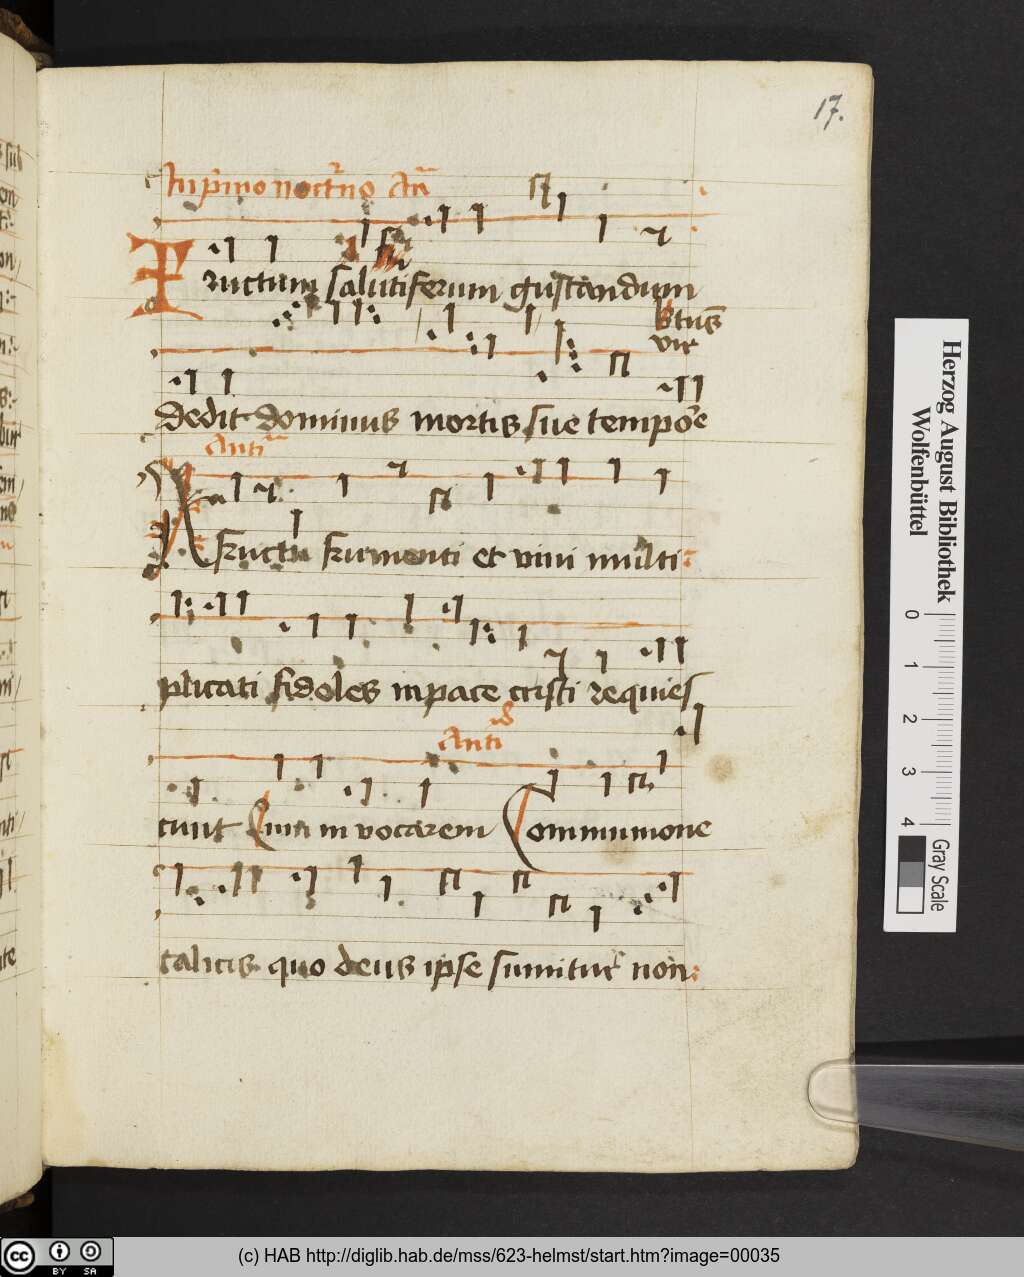 17.
In p̄mo noct̄no An̄
Fructum salutiferum gustandum
Btus̄
vir
dedit dominus mortis sue tempore
Anti
A fructu frumenti et vini multi
plicati fideles in pace cristi requies
Anti
cunt Cum in vocarem Communione
calicis quo deus ipse sumitur non
Herzog August Bibliothek
Wolfenbüttel
0 1 2 3 4
Gray Scale
cc BY SA
(c) HAB http://diglib.hab.de/mss/623-helmst/start.htm?image=00035